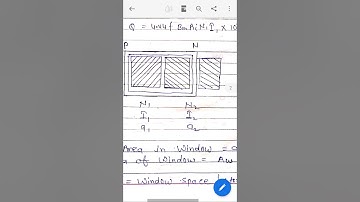 Q = 4.44 f Bm Ai N1 I1 × 10
P N
N1 N2
I1 I2
a1 a2
Area in Window =
of Window = Aw
= Window space